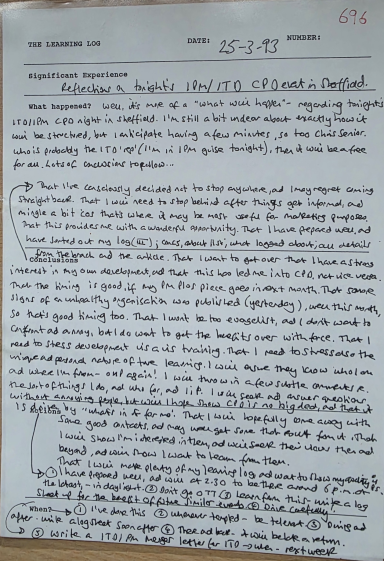 696
THE LEARNING LOG DATE: 25-3-93 NUMBER:
Significant Experience
Reflections on tonight's IPM/ITD CPD event in Sheffield.
What happened? Well, it's more of a "what will happen" - regarding tonight's
ITD/IPM CPD night in Sheffield. I'm still a bit unclear about exactly how it
will be structured, but I anticipate having a few minutes, so too Chris Senior.
who is probably the ITD 'rep' (I'm in IPM guise tonight), then it will be a free
for all. Lots of conclusions to follow...
That I've consciously decided not to stop anywhere, and I may regret coming
straight back. That I will need to stop behind after things get informal, and
mingle a bit 'cos that's where it may be most useful for marketing purposes.
That this provides me with a wonderful opportunity. That I have prepared well, and
have sorted out my log (III); cards, about list; what logged about; all details
from the branch and the article. That I want to get over that I have a strong
Conclusions
interest in my own development, and that this has led me into CPD, not vice versa.
That the timing is good, if my PM Plus piece goes in next month. That some
signs of an unhealthy organisation was published (yesterday), well this month,
so that's good timing too. That I won't be too evangelist, and I don't want to
confront as annoy, but I do want to get the benefits over with force. That I
need to stress development vis a vis training. That I need to stress also the
unique and personal nature of true learning. I will ensure they know who I am
and where I'm from - OMP again! I will throw in a few subtle comments re.
the sort of things I do, and who for, and I.i.P. I will speak and answer questions
without annoying people, but will hope show CPD is no big deal, and that it
is by "what's in it for me". That I will hopefully come away with
Actions
some good contacts, and may well get some that about from it. That
I will show I'm interested in them, and will seek their views then and
beyond, and will show I want to learn from them.
That I will make plenty of my learning log and want to show my
① I have prepared well, and will at 2.30 to be there around 6 p.m. at
the latest, - in daylight ② Don't go OTT ③ Learn from this - write a log
sheet up for the benefit of future similar events ④ Drive carefully
When? → ① I've done this ② whenever tempted - be tolerant ③ During and
after - write a log sheet soon after ④ There and back - it will be late on return.
⑤ Write a ITD/IPM Merger letter for ITD → when - next week